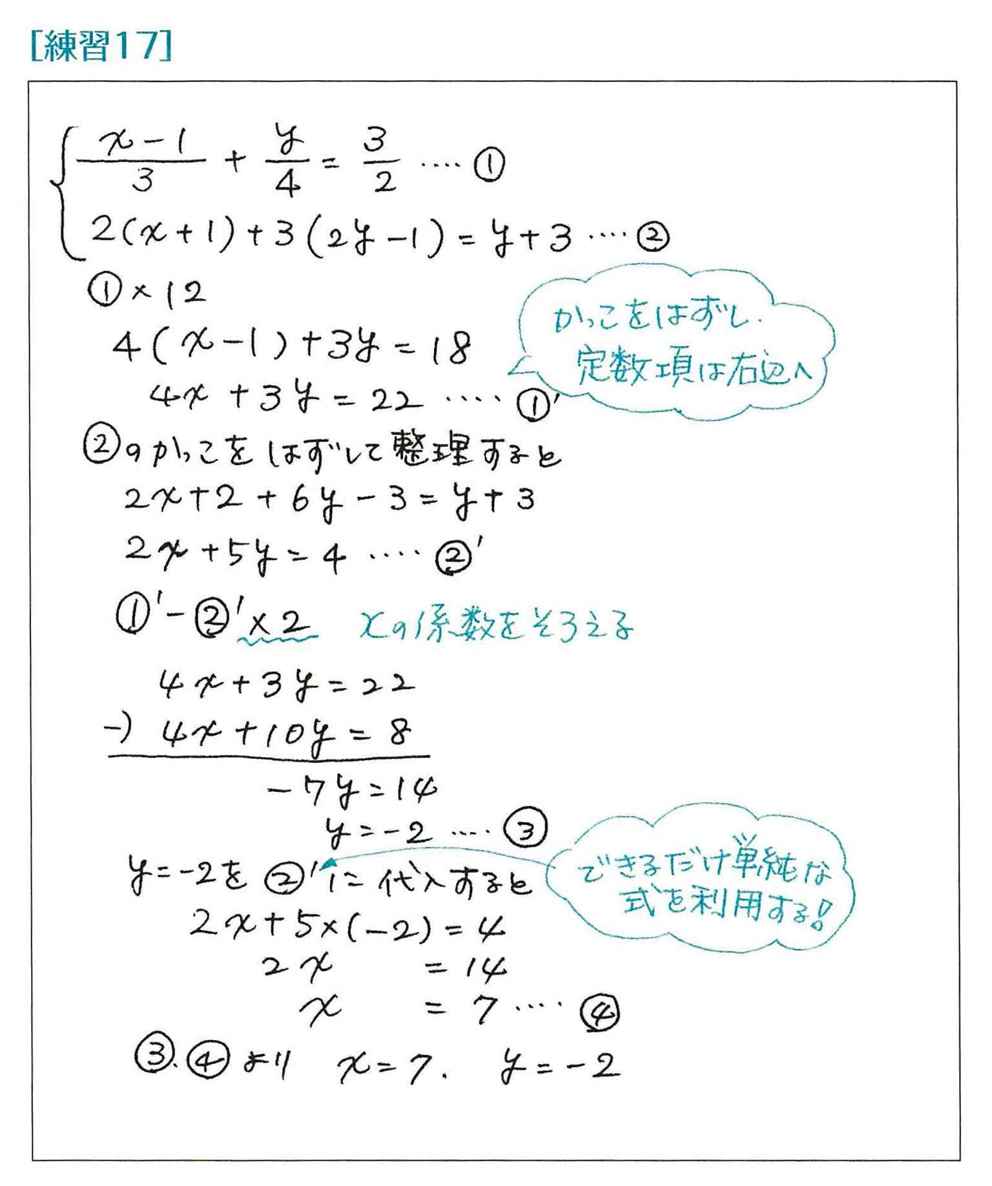 [練習17]
x-1/3 + y/4 = 3/2 ‥‥ ①
2(x+1)+3(2y-1)=y+3 ‥‥ ②
①×12
4(x-1)+3y=18
かっこをはずし、
定数項は右辺へ
4x+3y=22 ‥‥ ①'
②のかっこをはずして整理すると
2x+2+6y-3=y+3
2x+5y=4 ‥‥ ②'
①'-②'×2 xの係数をそろえる
4x+3y=22
-) 4x+10y=8
-7y=14
y=-2 ‥‥ ③
y=-2を②'に代入すると
できるだけ単純な
式を利用する!
2x+5×(-2)=4
2x =14
x =7 ‥‥ ④
③、④より x=7、 y=-2